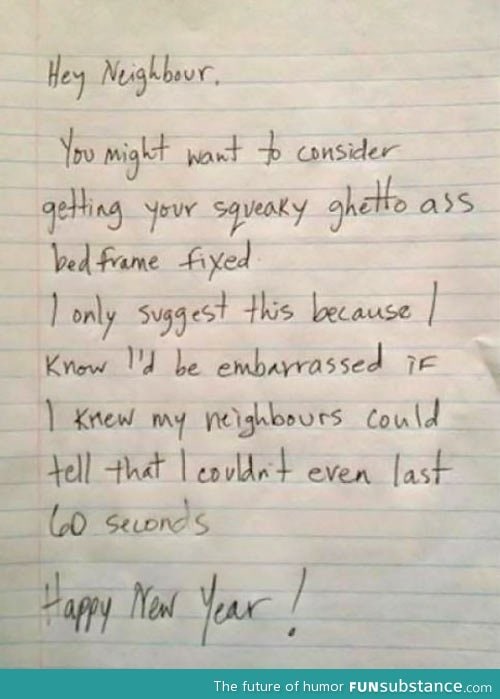 Hey Neighbour.
You might want to consider
getting your squeaky ghetto ass
bedframe fixed.
I only suggest this because I
know I'd be embarrassed if
I knew my neighbours could
tell that I couldn't even last
60 seconds
Happy New Year!
The future of humor FUNsubstance.com